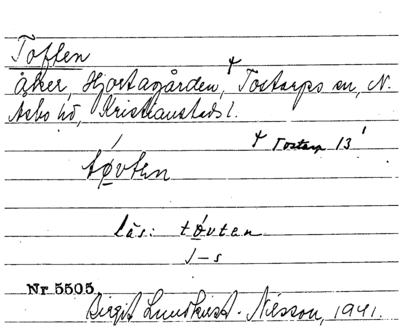 Toften
Åker, Hjortagården, † Tostarps sn, N.
Åsbo hd, Kristianstads l.
† Tostarp 13¹
tøvten
läs: tǿvten
J-s
Nr 5505
Birgit Lundkvist-Nilsson, 1941.